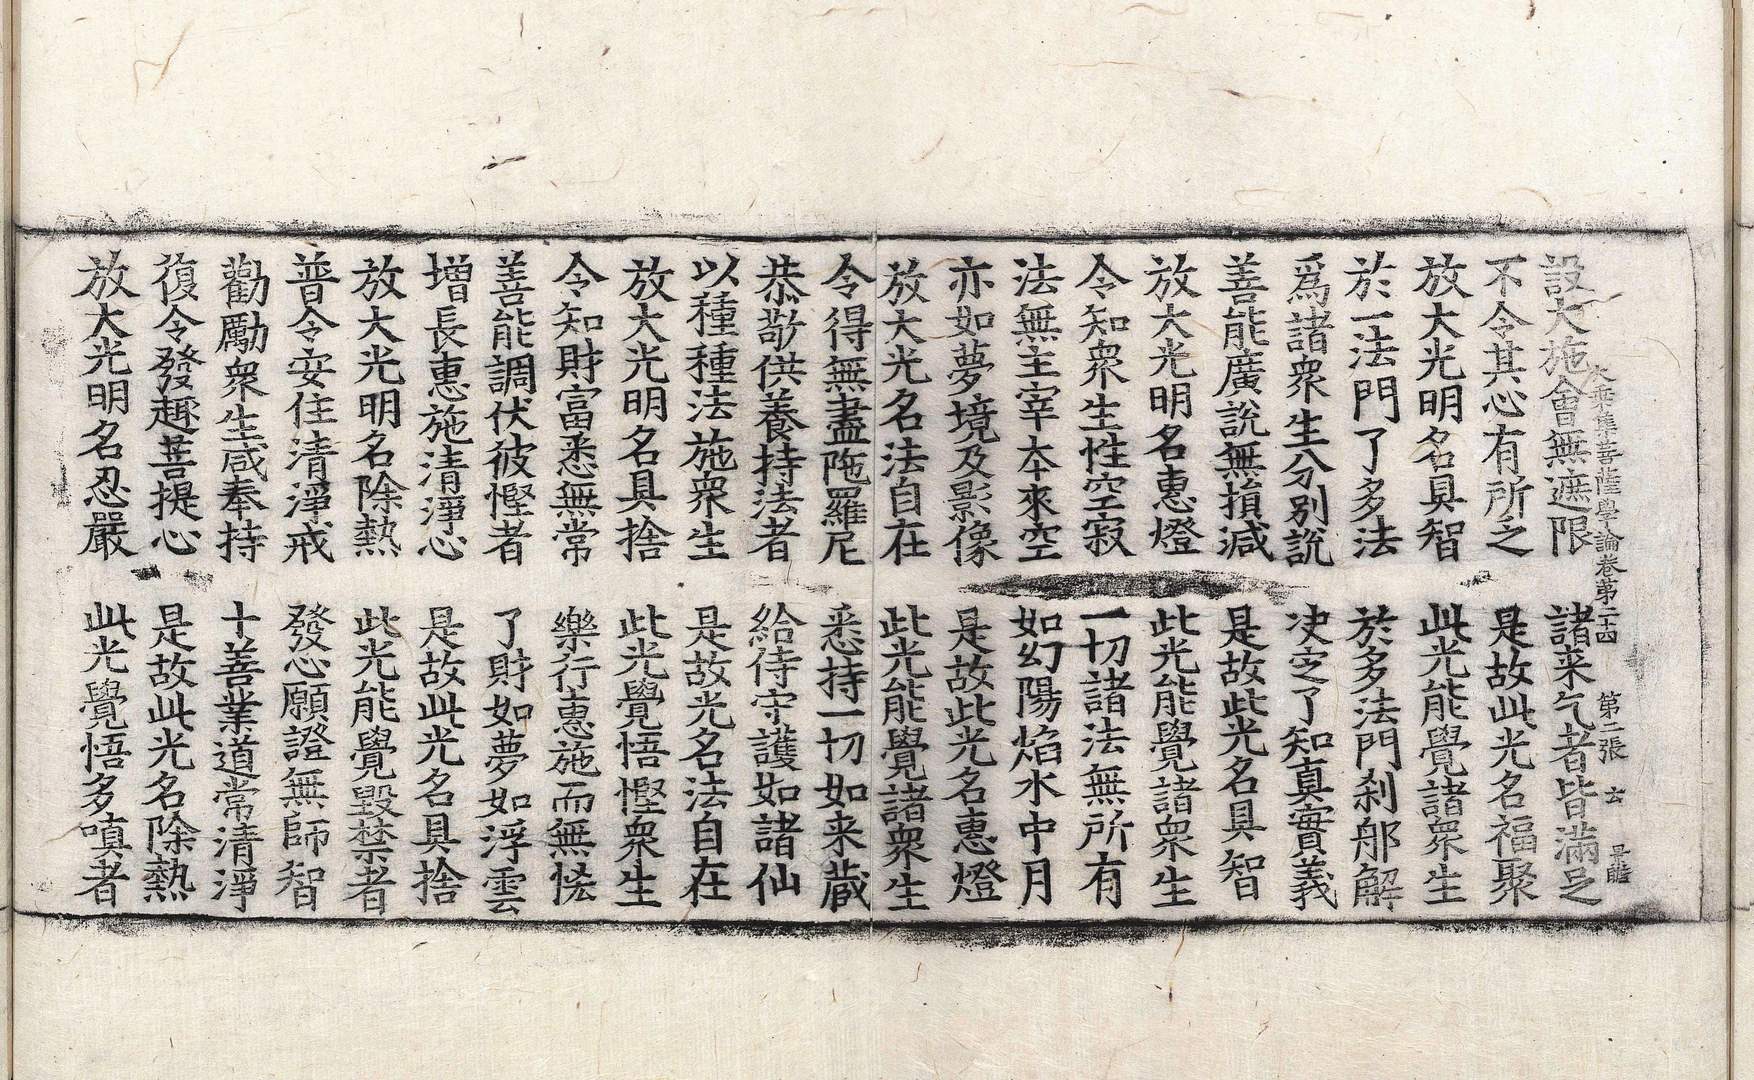 大乘集菩薩學論卷第二十四 第二張 玄
設大施會無遮限 諸来乞者皆滿足
不令其心有所乏 是故此光名福聚
放大光明名具智 此光能覺諸衆生
於一法門了多法 於多法門刹那解
爲諸衆生分別說 决定了知真實義
善能廣說無損减 是故此光名具智
放大光明名惠燈 此光能覺諸衆生
令知衆生性空寂 一切諸法無所有
法無主宰夲來空 如幻陽焰水中月
亦如夢境及影像 是故此光名惠燈
放大光名法自在 此光能覺諸衆生
令得無盡陁羅尼 悉持一切如来蔵
恭敬供養持法者 給侍守護如諸仙
以種種法施衆生 是故光名法自在
放大光明名具捨 此光覺悟慳衆生
令知財富悉無常 樂行惠施而無恡
善能調伏彼慳者 了財如夢如浮雲
增長惠施清淨心 是故此光名具捨
放大光明名除熱 此光能覺毀禁者
普令安住清淨戒 發心願證無師智
勸勵衆生咸奉持 十善業道常清淨
復令發趣菩提心 是故此光名除熱
放大光明名忍嚴 此光覺悟多嗔者